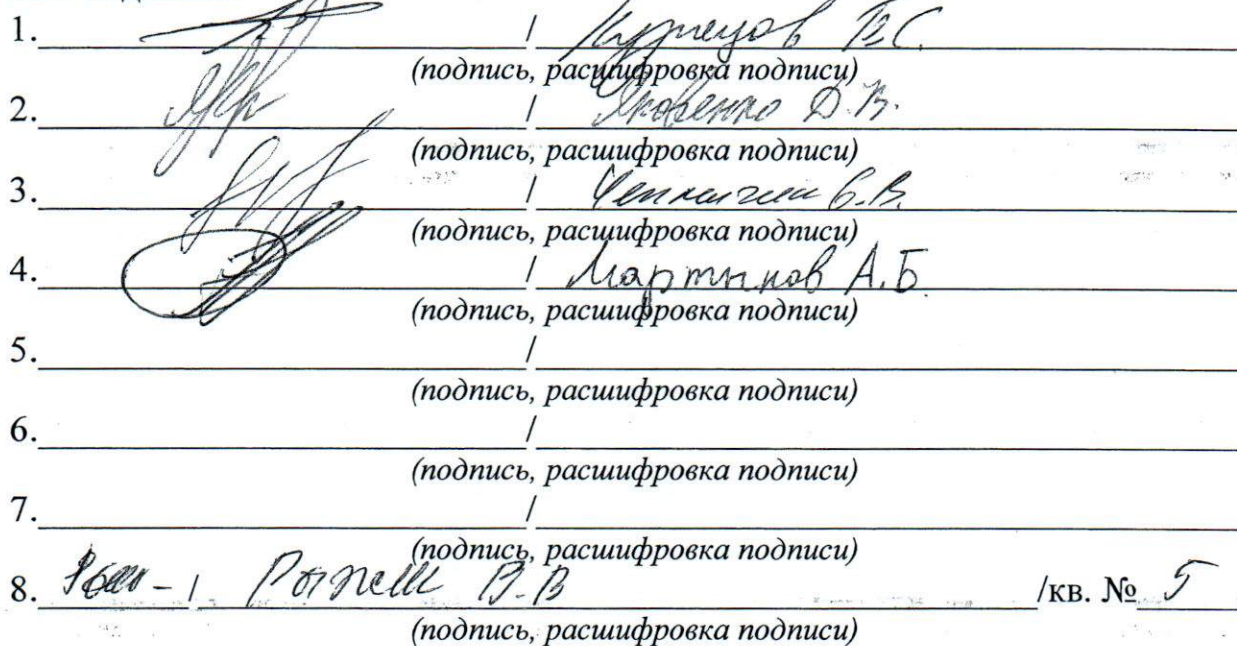 1. / Кузнецов В.С.
(подпись, расшифровка подписи)
2. / Яковенко Д.В.
(подпись, расшифровка подписи)
3. / В.В.
(подпись, расшифровка подписи)
4. / Мартынов А.Б
(подпись, расшифровка подписи)
5. /
(подпись, расшифровка подписи)
6. /
(подпись, расшифровка подписи)
7. /
(подпись, расшифровка подписи)
8. / В.В /кв. № 5
(подпись, расшифровка подписи)